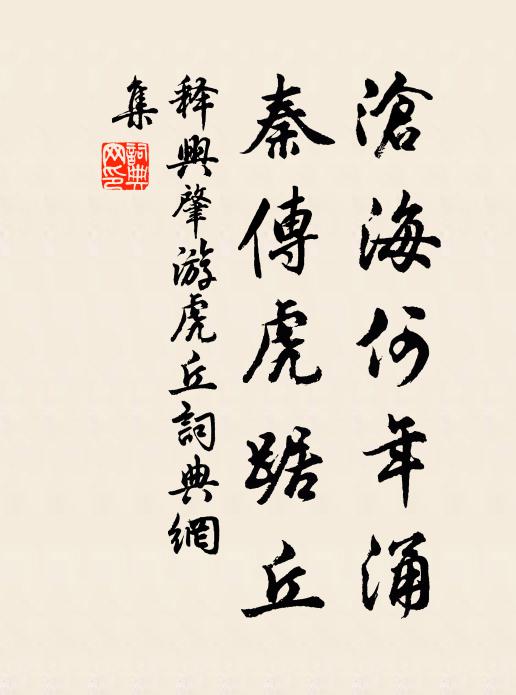 滄海何年涌
秦傳虎踞丘
释興肇游虎丘詞典網
集
詞典網印